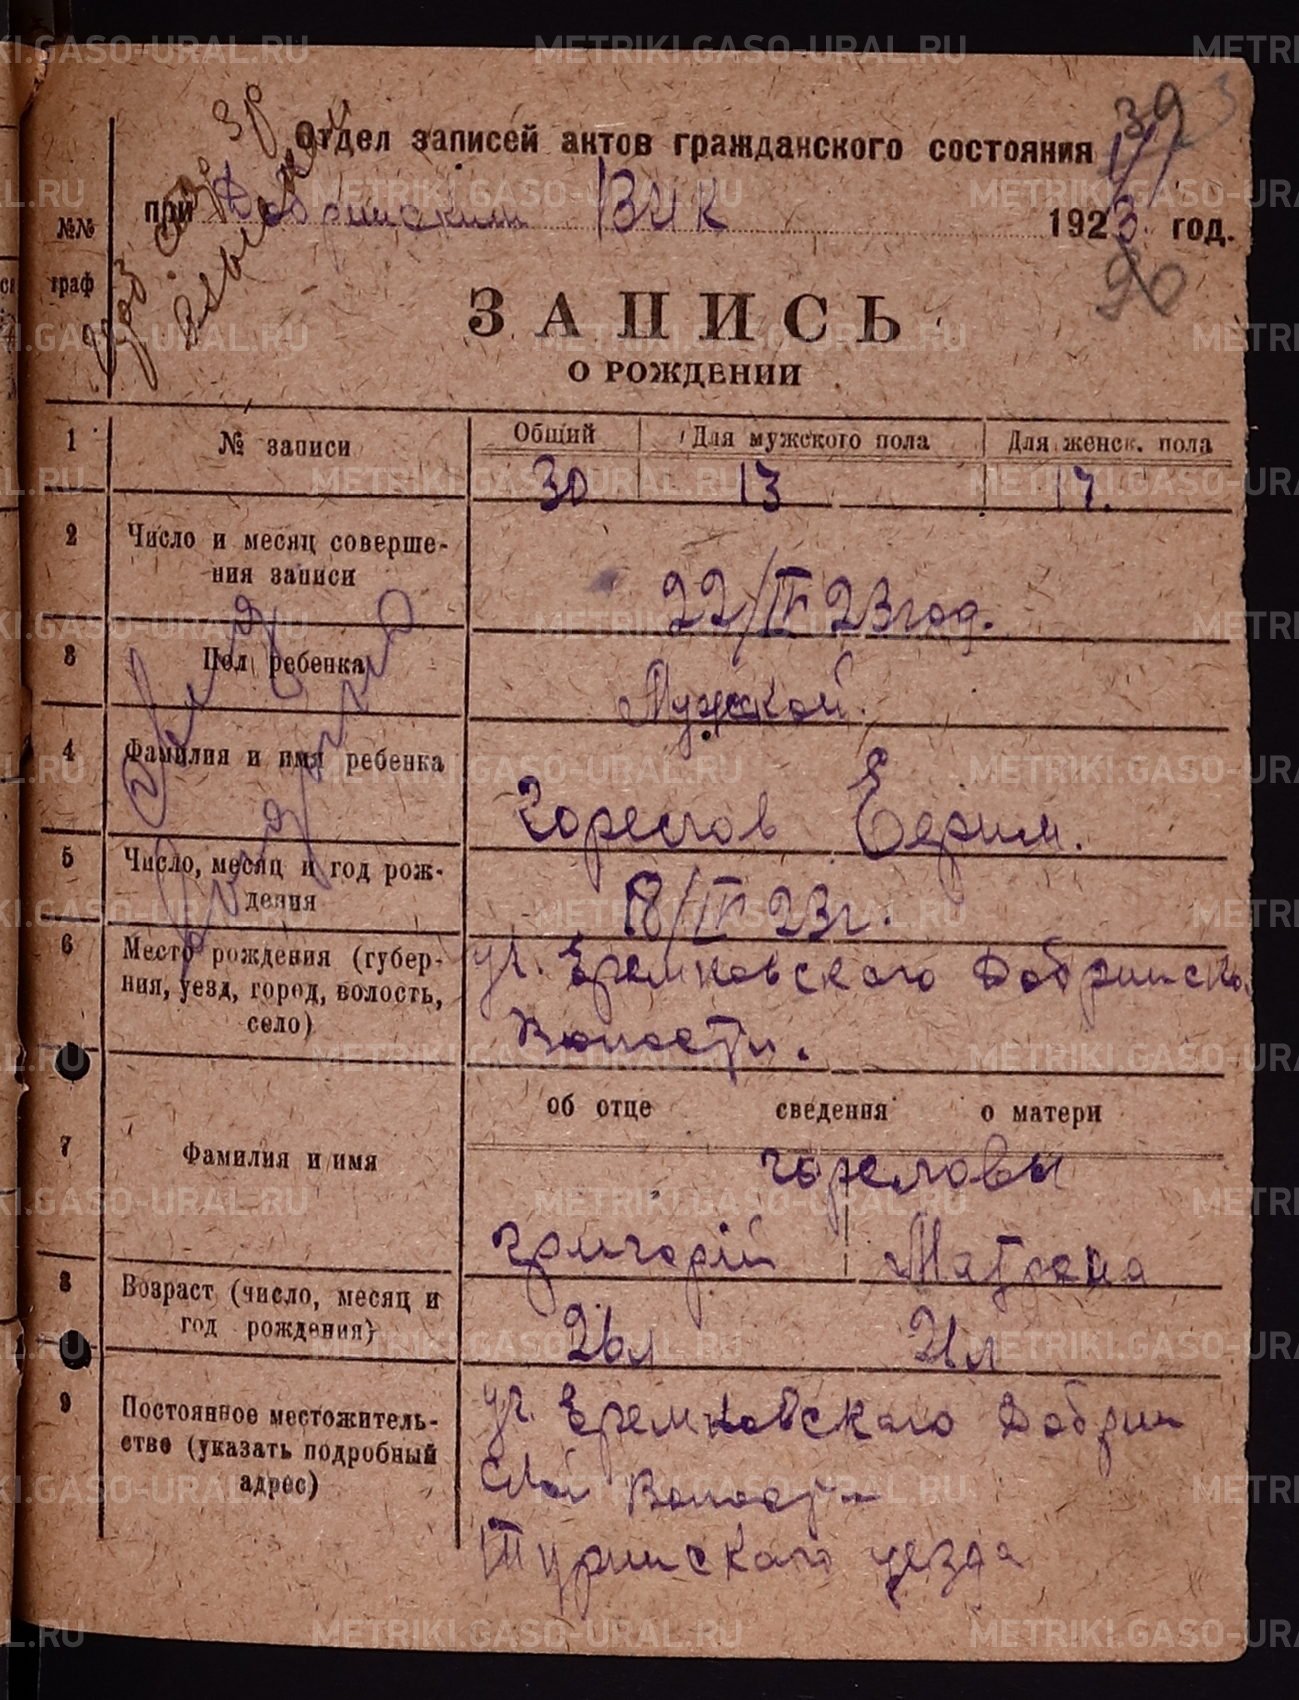 39 3
Отдел записей актов гражданского состояния
при Добринским ВИК 1923 год.
90
№№ граф
ЗАПИСЬ
О РОЖДЕНИИ
1 № записи Общий Для мужского пола Для женск. пола
30 13 17.
2 Число и месяц соверше-
ния записи
22/IV 23 год.
3 Пол ребенка
Мужской.
4 Фамилия и имя ребенка
Горелов Ефим.
5 Число, месяц и год рож-
дения
18/IV 23 г.
6 Место рождения (губер-
ния, уезд, город, волость,
село)
уч. Еремковского Добринско
Волости.
об отце сведения о матери
7 Фамилия и имя
Гореловы
Григорій Матрена
8 Возраст (число, месяц и
год рождения)
26 л 21 л
9 Постоянное местожитель-
ство (указать подробный
адрес)
уч. Еремковского Добрин
ской Волости
Туринского уезда
METRIKI.GASO-URAL.RU